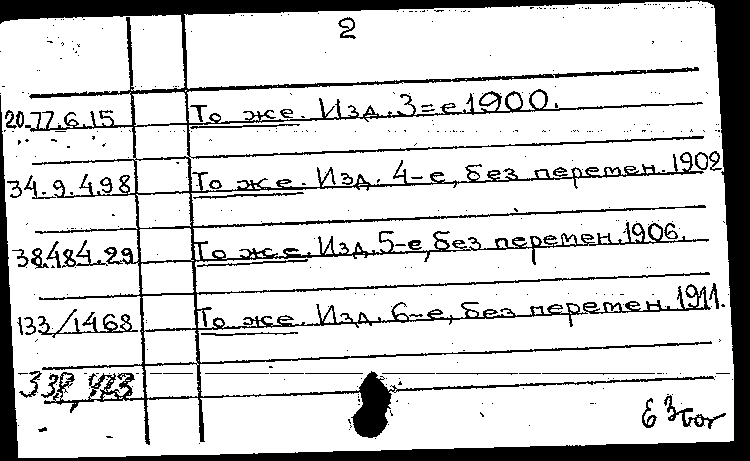 2
20.77.6.15 То же. Изд. 3=е. 1900.
34.9.498 То же. Изд. 4-е, без перемен. 1902
38.484.29 То же. Изд. 5-е, без перемен. 1906.
133/1468 То же. Изд. 6-е, без перемен. 1911.
338,423